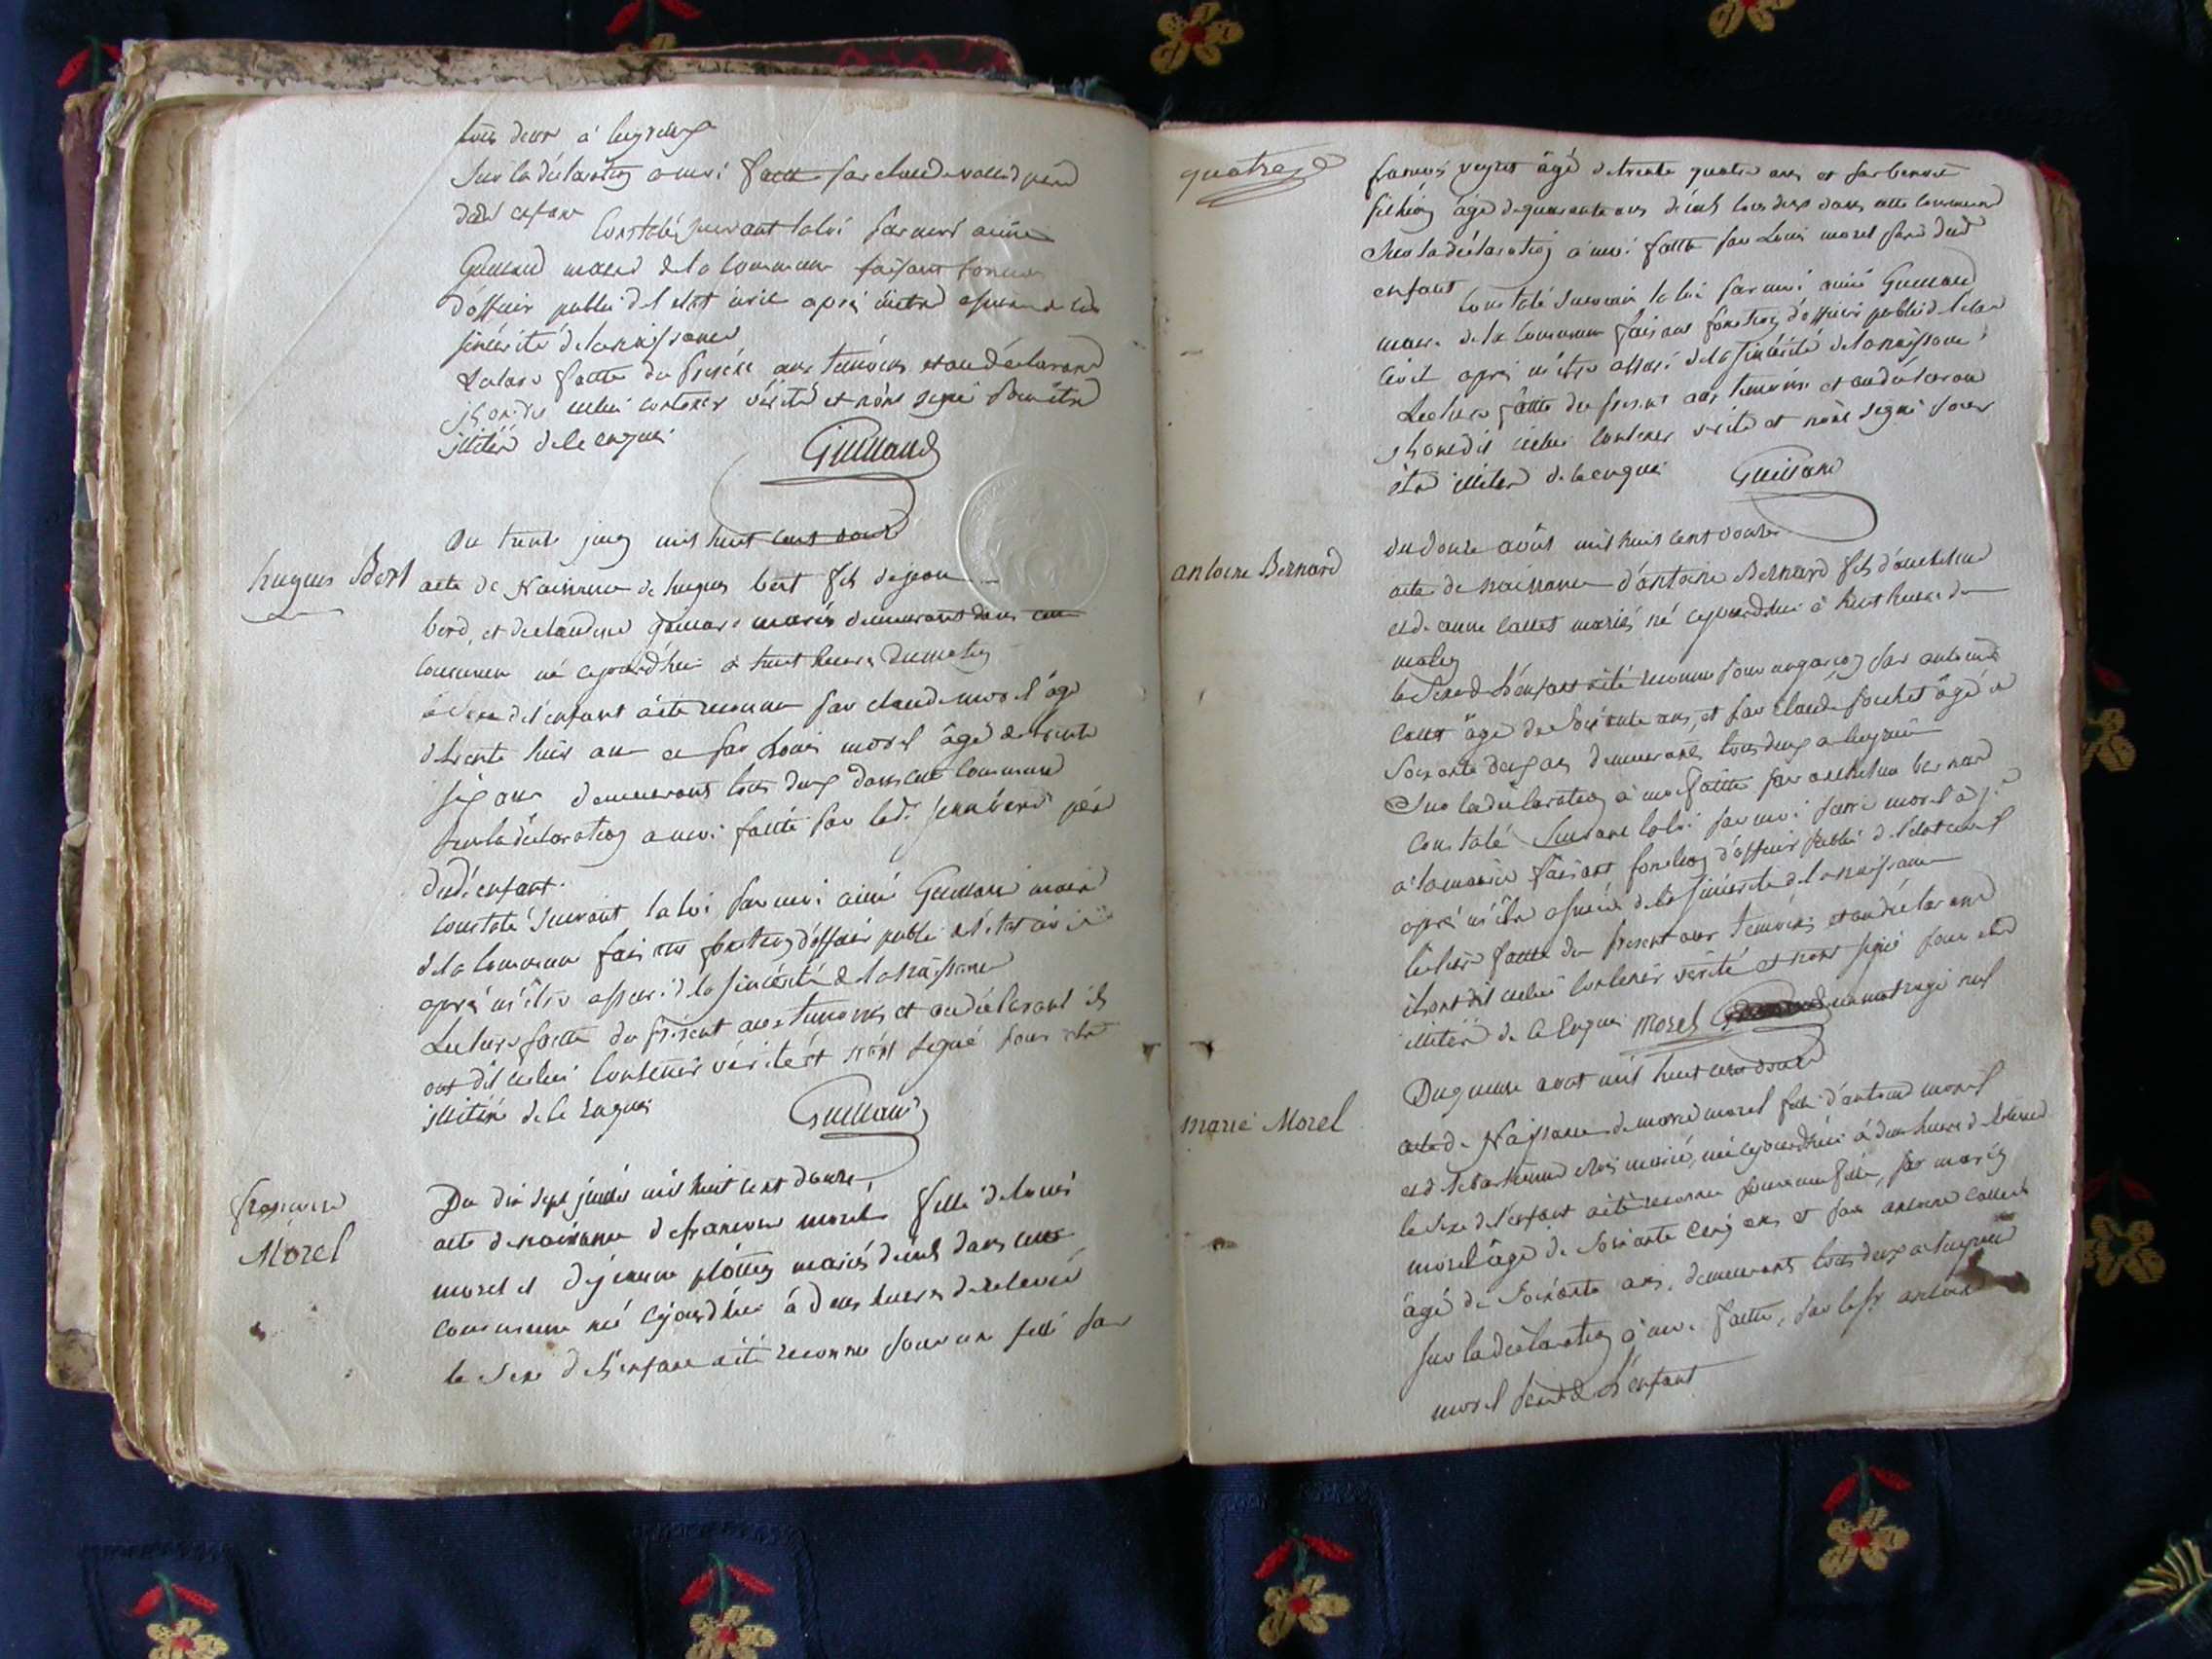 tous deux à
Sur la déclaration a moi faitte par claude pere
dud enfant
Constaté suivant la loi par moi aimé
Guillaud maire de la commune faisant fonction
d'officier public de l'etat civil apré m'etre assuré de la
sincérité de la naissance
Lecture faitte du présent aux temoins et au déclarant
ils ont dit celui contenir vérité et n'ont signé pour être
illitéré de ce enquis
Guillaud
hugues Bert
Du trente juin mil huit cent douze
acte de Naissance de hugues bert fils de jean
berd, et de claudine mariés demeurants dans cette
commune né cejourd'hui à huit heures du matin
le Sexe de l'enfant a été reconnu par claude morel âgé
de trente huit ans et par Louis morel âgé de trente
six ans demeurants tous deux dans cette commune
sur la déclaration a moi faitte par led. jean berd père
dud. enfant.
constaté suivant la loi par moi aimé Guillaud maire
de la commune faisant fonction d'officier public de l'etat civil
apré m'être assuré de la sincérité de la naissance
Lecture faitte du présent aux temoins et au déclarant ils
ont dit celui contenir vérité et n'ont signé pour être
illitéré de ce enquis
Guillaud
françoise
Morel
Du dix sept juillet mil huit cent douze,
acte de naissance de francoise morel fille de louis
morel et de jeanne mariés dans cette
commune né cejourd'hui à deux heures de relevée
le Sexe de l'enfant a été reconnu pour une fille par
quatorze
françois âgé de trente quatre ans et par benoit
âgé de quarante ans tous deux dans cette commune
Sur la déclaration à moi faitte par Louis morel père dud
enfant
Constaté suivant la loi par moi aimé Guillaud
maire de la commune faisant fonction d'officier public de l'etat
civil apré m'être assuré de la sincérité de la naissance
Lecture faitte du present aux temoins et au déclarant
ils ont dit celui contenir vérité et n'ont signé pour
être illitéré de ce enquis
Guillaud
antoine Bernard
du douze août mil huit cent douze
acte de naissance d'antoine Bernard fils d'anthelme
et de anne mariés né cejourd'hui à huit heures du
matin
le Sexe de l'enfant a été reconnu pour un garçon par antoine
âgé de soixante ans, et par claude âgé de
soixante deux ans demeurants tous deux a
Sur la déclaration à moi faitte par anthelme bernard
Constaté Suivant la loi par moi morel adj.
a la mairie faisant fonction d'officier public de l'etat civil
apré m'être assuré de la sincérité de la naissance
lecture faitte du present aux temoins et au déclarant
ils ont dit celui contenir vérité et n'ont signé pour etre
illitéré de ce enquis Morel un mot rayé nul
marie Morel
Du quinze aout mil huit cent douze
acte de Naissance de marie morel fille d'antoine morel
et de mariés, née cejourd'hui à deux heures de relevée
le Sexe de l'enfant a été reconnu pour une fille, par marin
morel âgé de soixante cinq ans et par antoine
âgé de soixante ans, demeurants tous deux a
sur la déclaration à moi faitte, par le sr antoine
morel père de l'enfant